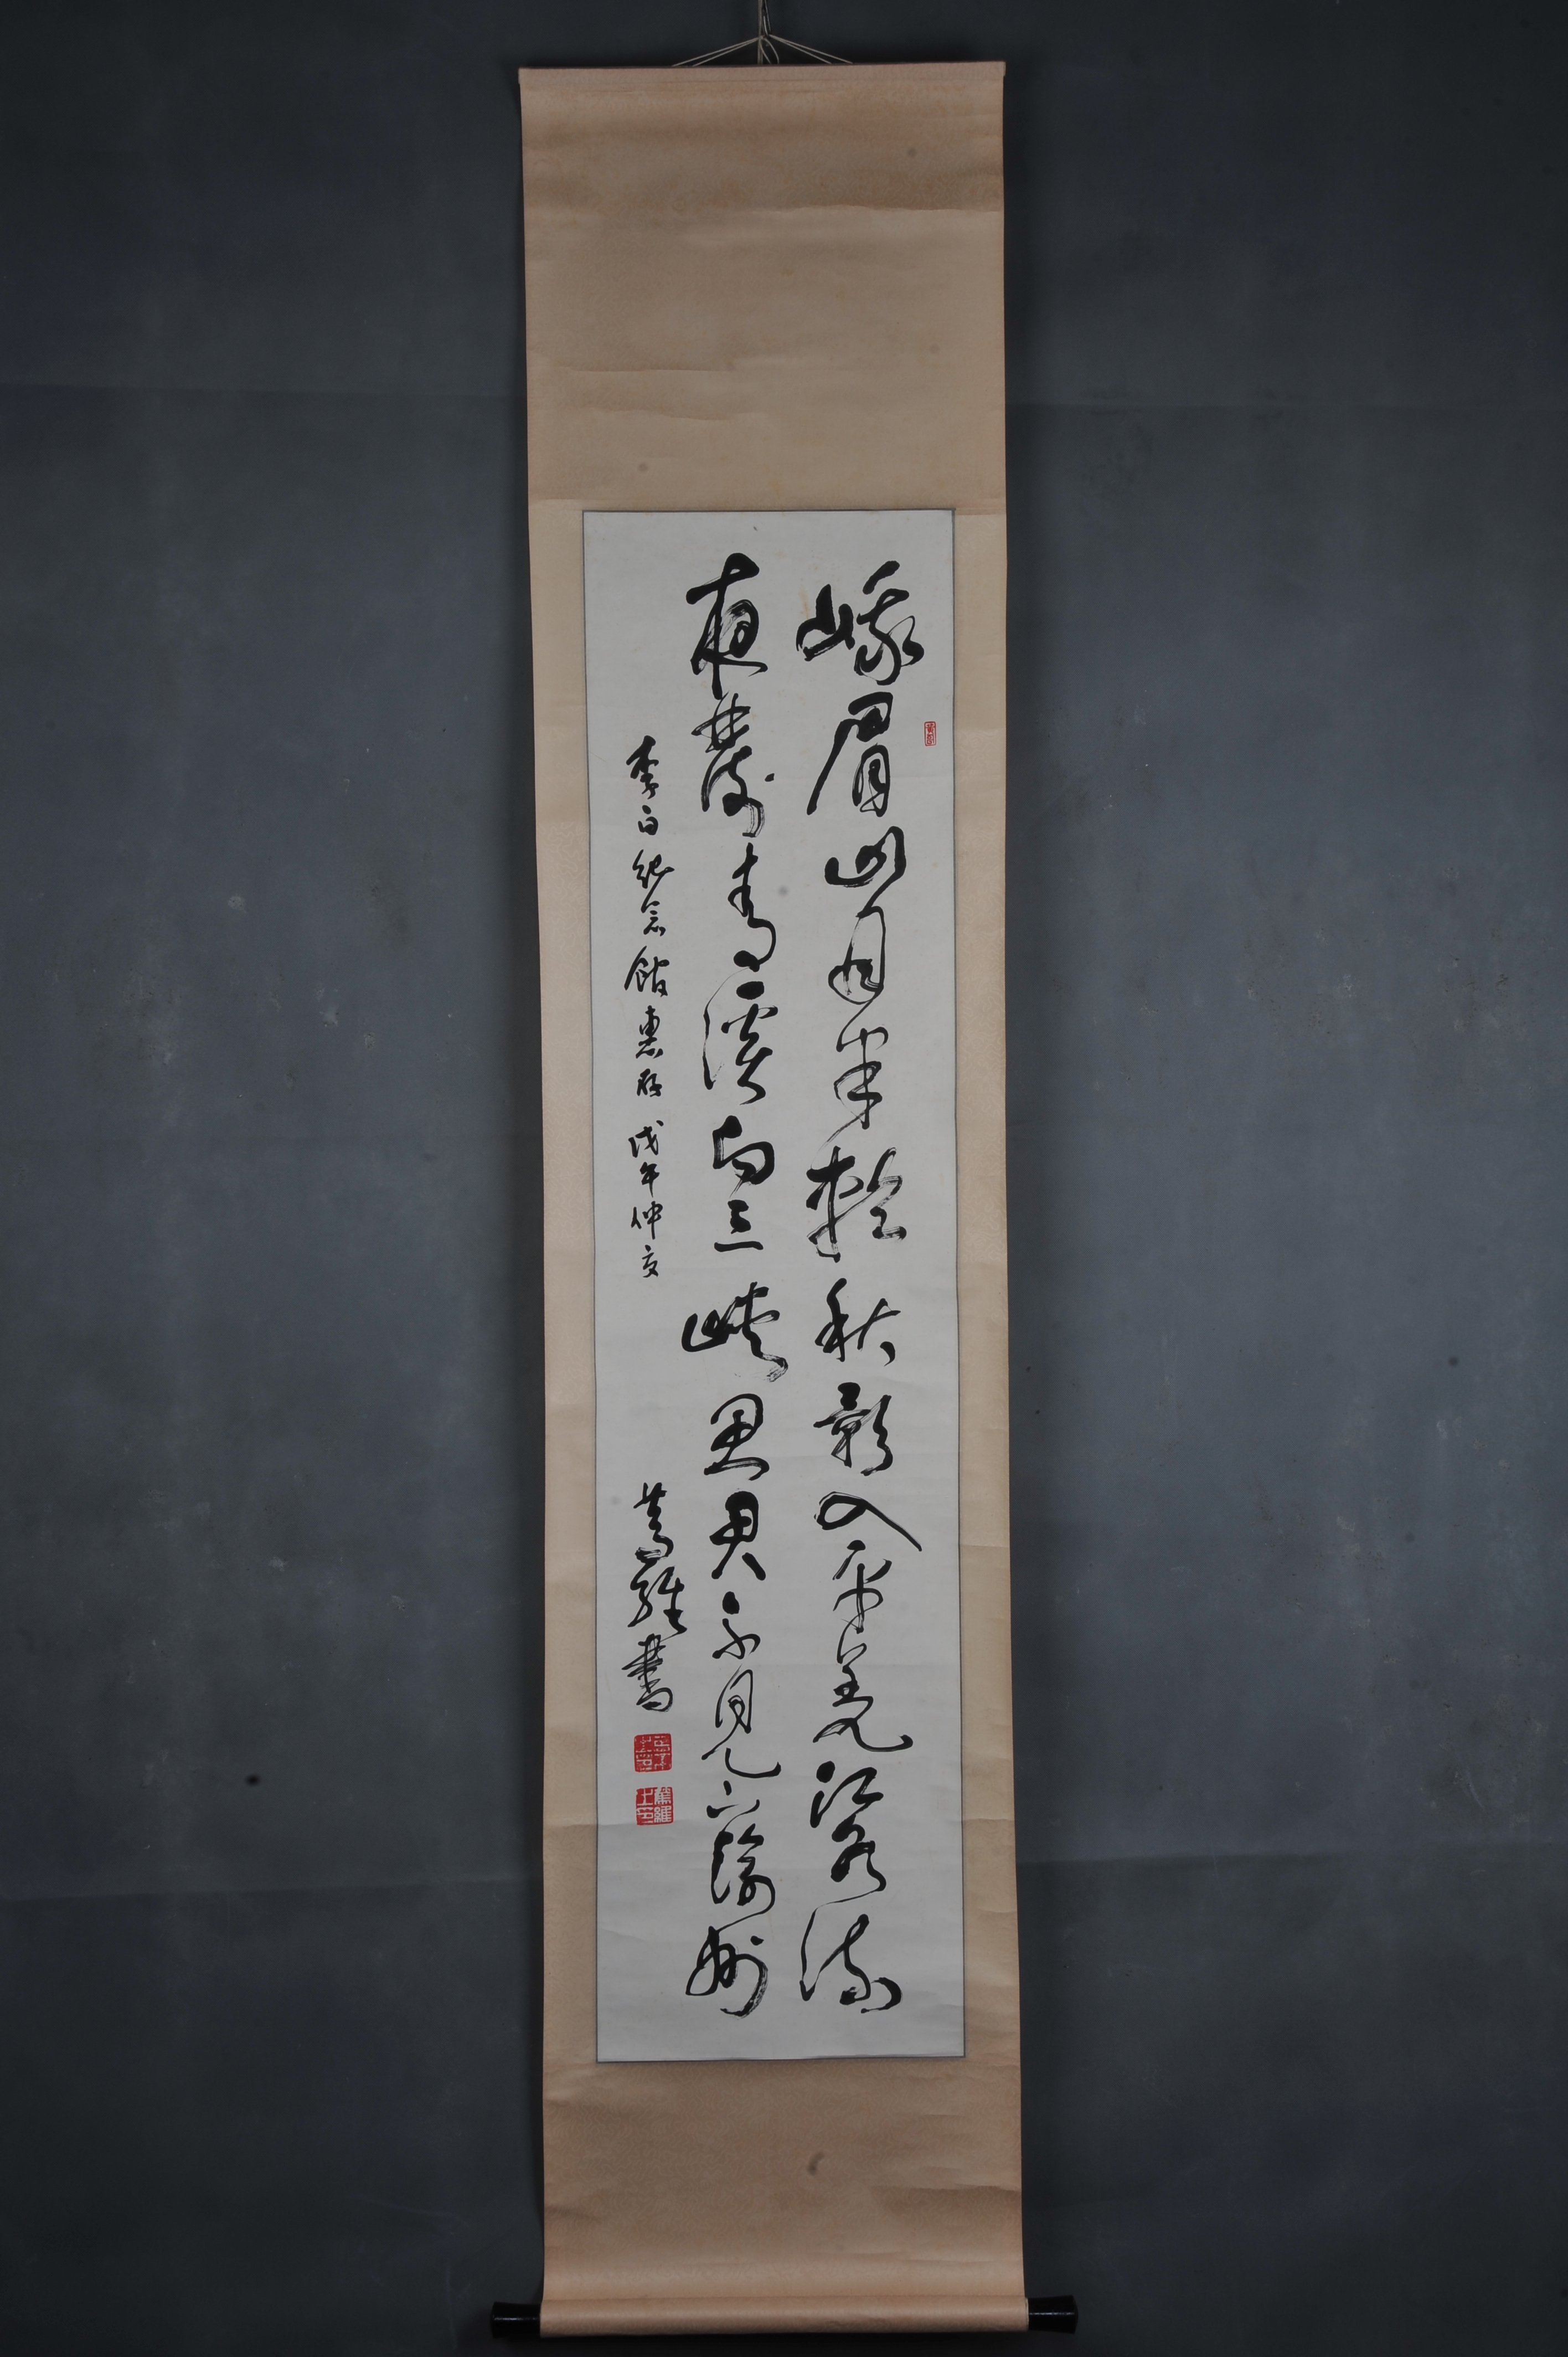 峨眉山月半輪秋影入平羌江水流
夜發青溪向三峽思君不見下渝州
李白紀念館惠存 戊午仲夏 書